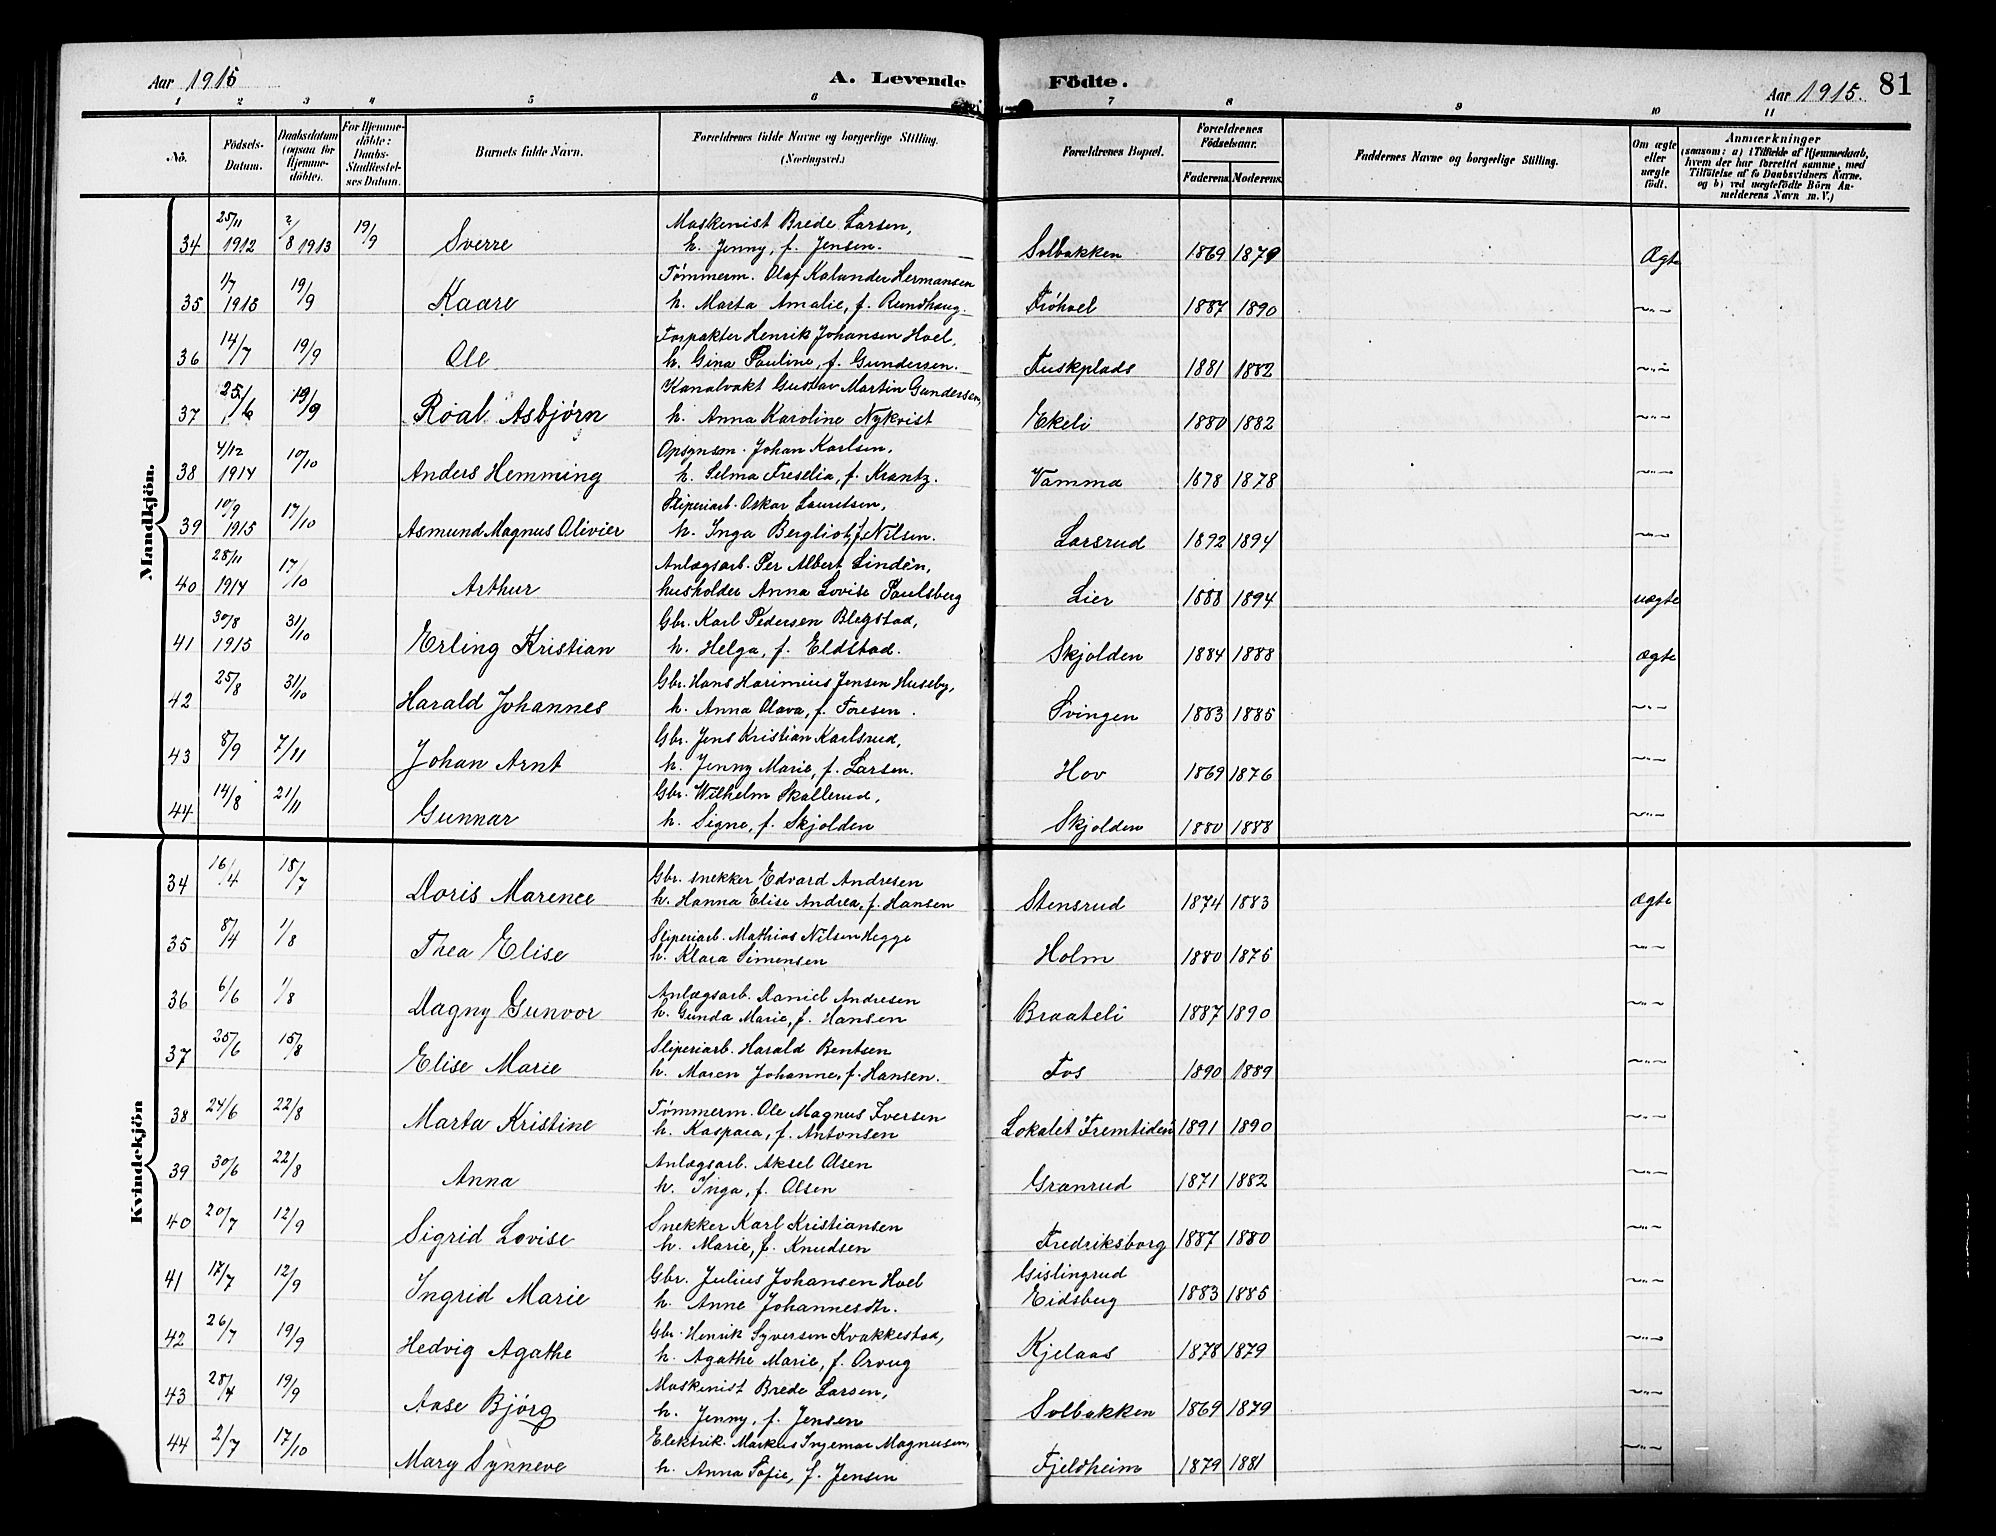 Aar 1915
A. Levende Födte.
Aar 1915.
81
1 2 3 4 5 6 7 8 9 10 11
Nö.
Födsels-Datum.
Daabsdatum (ogsaa for Hjemme-döbte).
For Hjemme-döbte: Daabs-Stadfæstel-ses Datum.
Barnets fulde Navn.
Forældrenes fulde Navne og borgerlige Stilling. (Næringsvei.)
Forældrenes Bopæl.
Forældrenes Födselsaar.
Faderens Moderens
Faddernes Navne og borgerlige Stilling.
Om ægte eller uægte födt.
Anmærkninger
(saasom: a) i Tilfælde af Hjemmedaab, hvem der har forrettet samme, med Tilföielse af to Daabsvidners Navne. og b) ved uægtefödte Börn Anmelderens Navn m. V.)
Mandkjön.
34 25/11 1912 2/8 1913 19/9 Sverre Maskenist Brede Larsen, Solbakken 1869 1879 Ægte
h. Jenny, f. Jensen.
35 1/7 1915 19/9 Kaare Tømmerm. Olaf Kalander Hermansen Fróhoel 1887 1890 —"—
h. Marta Amalie, f. Rundhaug.
36 14/7 19/9 Ole Forpakter Henrik Johansen Hoel, Fuskplads 1881 1882 —"—
h. Gina Pauline, f. Gundersen.
37 25/6 19/9 Roal Asbjørn Kanalvakt Gustav Martin Gundersen, Ekeli 1880 1882 —"—
h. Anna Karoline Nykvist
38 4/12 1914 10/10 Anders Hemming Opsynsm. Johan Karlsen, Vamma 1878 1878 —"—
h. Selma Freselia, f. Krantz.
39 10/9 1915 17/10 Asmund Magnus Olivier Sliperiarb. Oskar Lauritsen, Larsrud 1892 1894 —"—
h. Inga Bergliot, f. Nilsen.
40 28/11 1914 17/10 Arthur Anlægsarb. Per Albert Lindén, Lier 1888 1894 uægte
husholder Anna Lovise Paulsberg
41 30/8 1915 31/10 Erling Kristian Gbr. Karl Pedersen Blegstad, Skjolden 1884 1888 ægte
h. Helga, f. Eldstad.
42 25/8 31/10 Harald Johannes Gbr. Hans Harimius Jensen Huseby, Svingen 1883 1885 —"—
h. Anna Olava, f. Toresen.
43 8/9 7/11 Johan Arnt Gbr. Jens Kristian Karlsrud, Hov 1869 1876 —"—
h. Jenny Marie, f. Larsen.
44 14/8 21/11 Gunnar Gbr. Wilhelm Skallerud, Skjolden 1880 1888 —"—
h. Signe, f. Skjolden
Kvindekjön
34 16/4 18/7 Doris Marence Gbr. snekker Edvard Andresen Stensrud 1874 1883 Ægte
h. Hanna Elise Andrea, f. Hansen
35 8/4 1/8 Thea Elise Sliperiarb. Mathias Nilsen Hegge Holm 1880 1875 —"—
h. Klara Simensen
36 6/6 1/8 Dagny Gunvor Anlægsarb. Daniel Andresen Braateli 1887 1890 —"—
h. Gunda Marie, f. Hansen
37 25/6 15/8 Elise Marie Sliperiarb. Harald Bentsen Fos 1890 1889 —"—
h. Maren Johanne, f. Hansen.
38 24/6 22/8 Marta Kristine Tømmerm. Ole Magnus Iversen Lokalet Fremtiden 1891 1890 —"—
h. Kaspara, f. Antonsen
39 30/6 22/8 Anna Anlægsarb. Aksel Olsen Granrud 1871 1882 —"—
h. Inga, f. Olsen
40 20/7 12/9 Sigrid Lovise Snekker Karl Kristiansen Fredriksborg 1887 1880 —"—
h. Marie, f. Knudsen
41 17/7 12/9 Ingrid Marie Gbr. Julius Johansen Hoel Gislingrud Eidsberg 1883 1885 —"—
h. Anne Johannesdtr.
42 26/7 19/9 Hedvig Agathe Gbr. Henrik Syversen Kvakkestad, Kjelaas 1878 1879 —"—
h. Agathe Marie, f. Orvug
43 28/4 19/9 Aase Bjórg Maskenist Brede Larsen, Solbakken 1869 1879 —"—
h. Jenny, f. Jensen
44 2/7 17/10 Mary Synneve Elektrik. Markus Ingemar Magnusen, Fjeldheim 1879 1881 —"—
h. Anna Sofie, f. Jensen